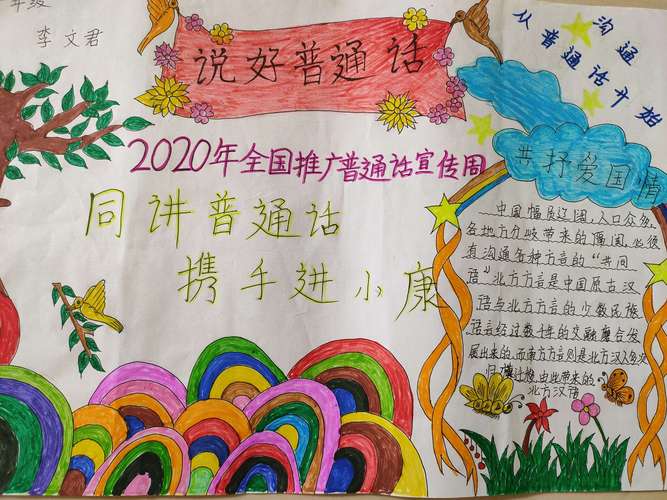 年级
李文君
说好普通话
沟通
从普通话开始
2020年全国推广普通话宣传周
同讲普通话
携手进小康
共抒爱国情
中国幅员辽阔,人口众多,
各地方分歧带来的
有沟通各种方言的“共同
语”北方方言是中国原古汉
语与北方方言的少数民族
语言经过数千年的交融磨合发
展出来的,而南方方言则是北方汉人多次
归 迁移 由此带来的
北方汉语